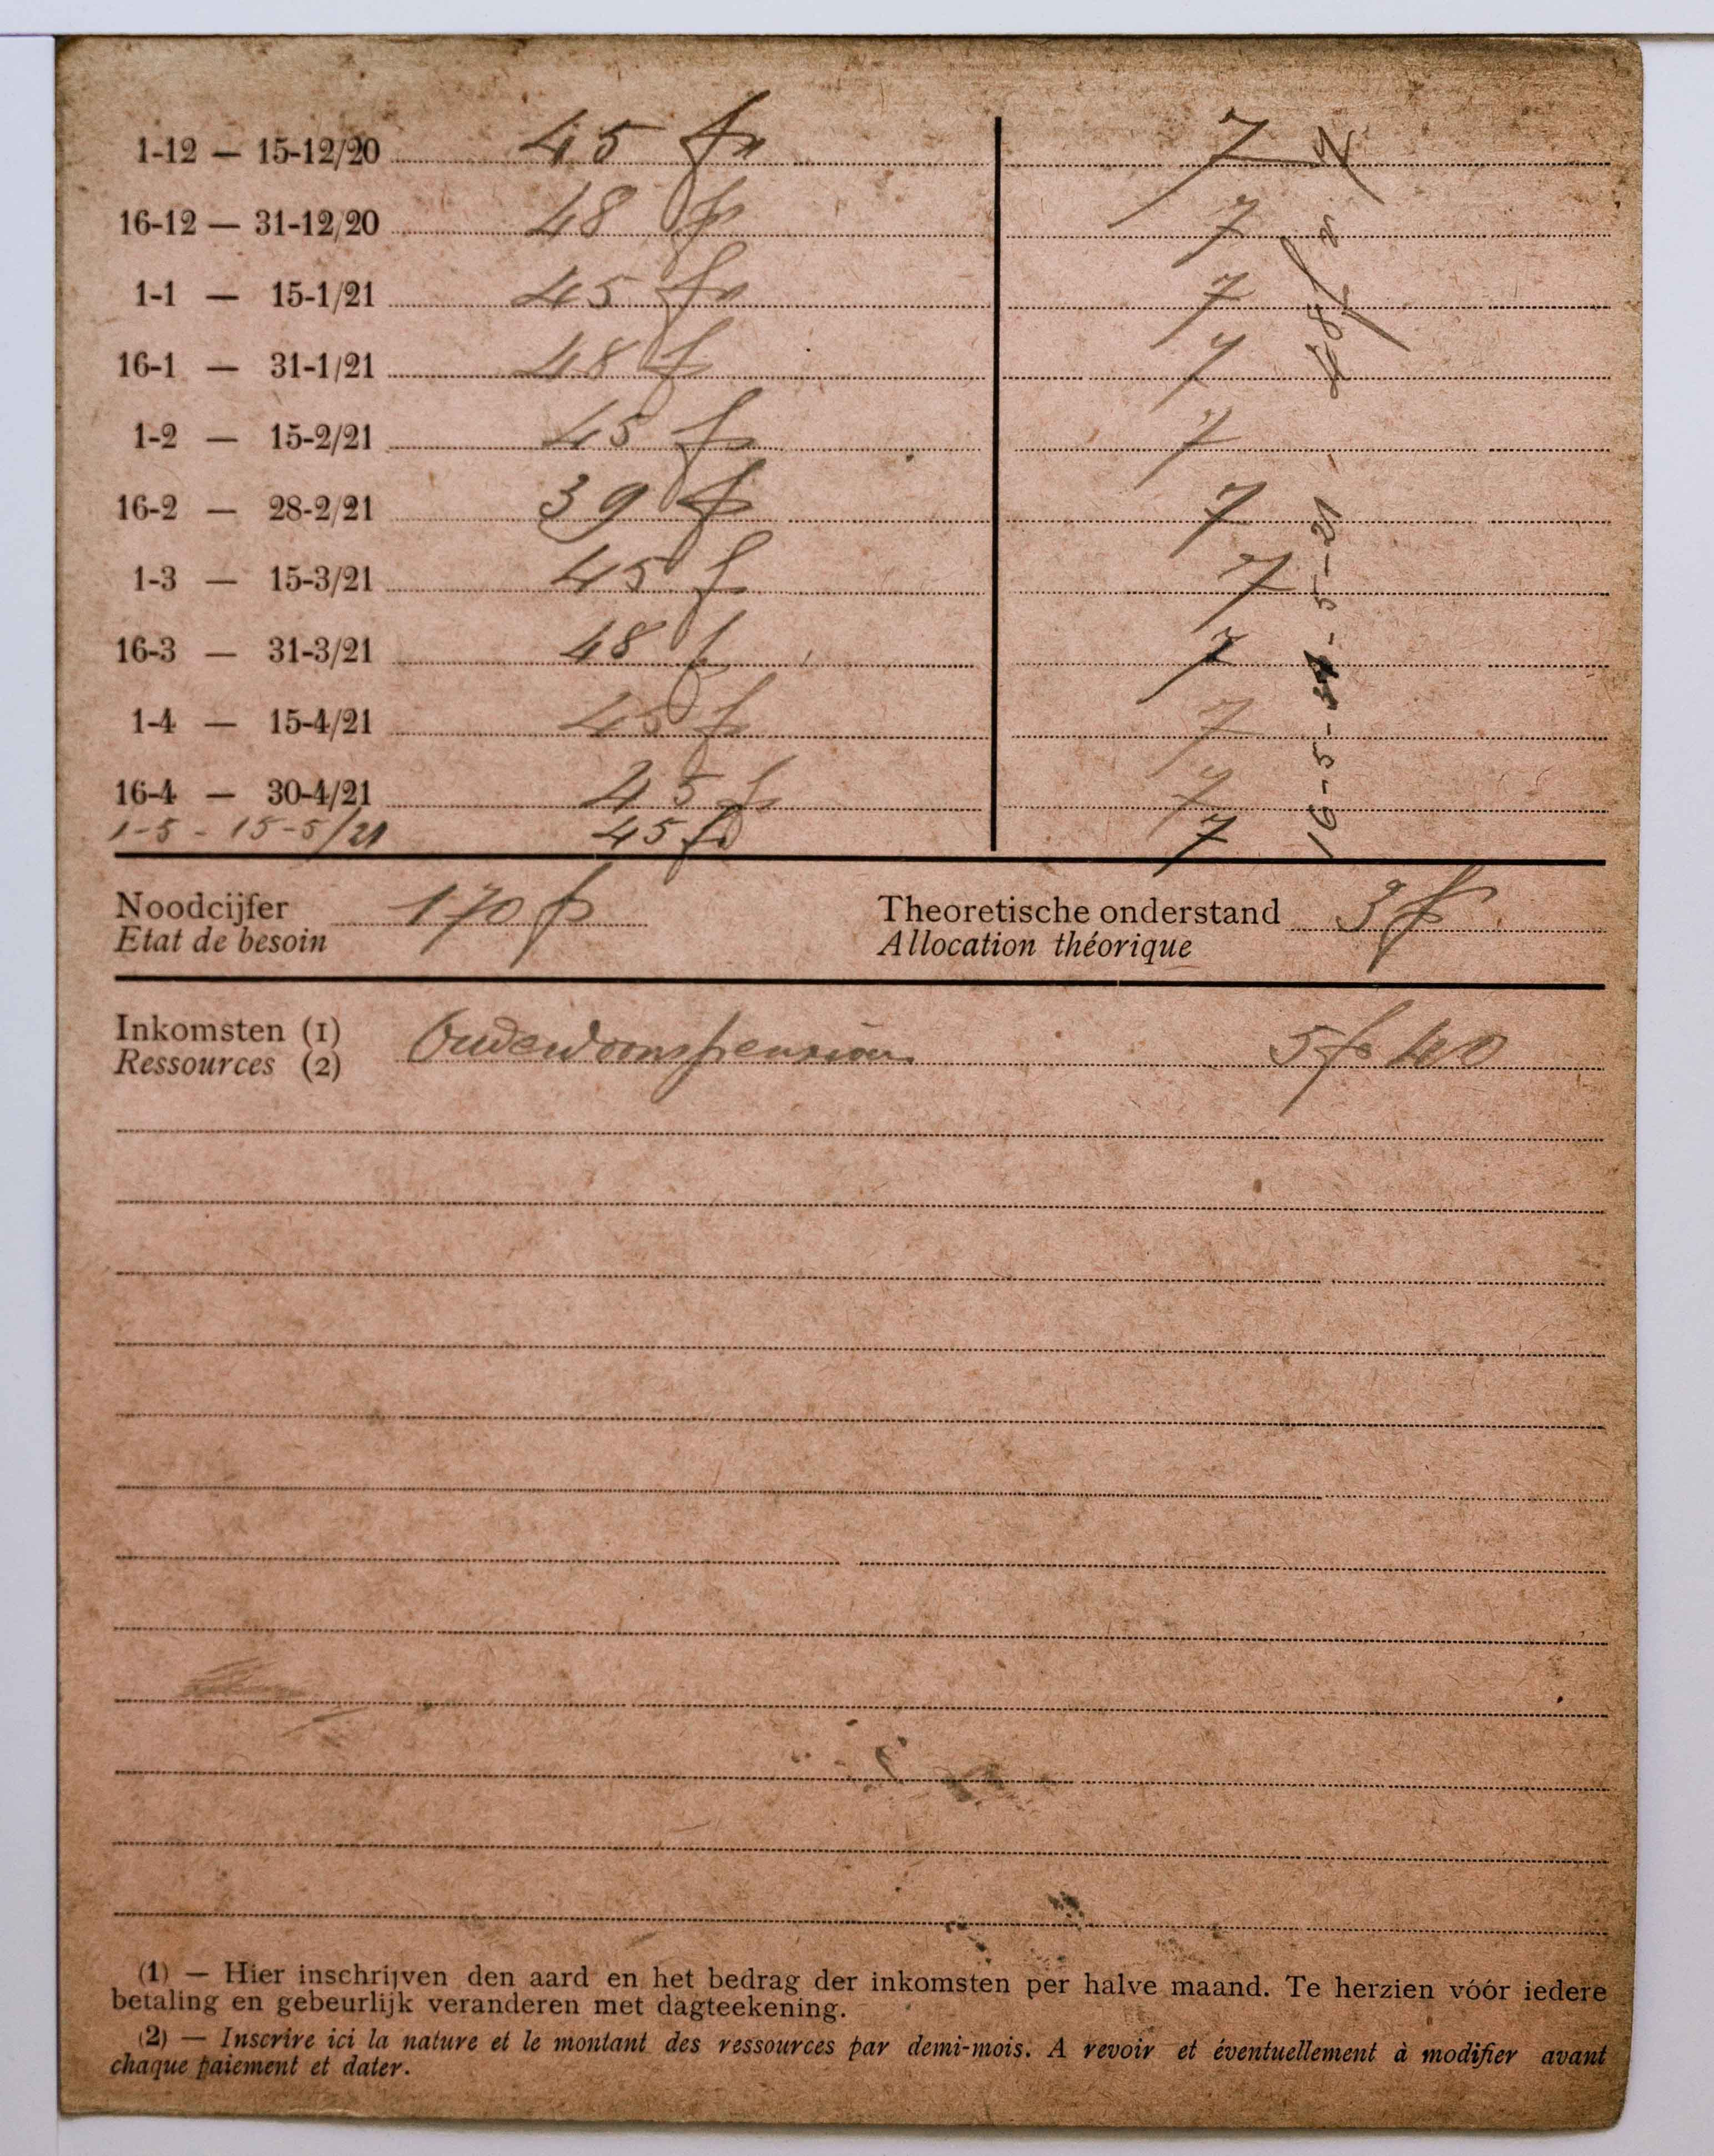 1-12 — 15-12/20 45 fr 7
16-12 — 31-12/20 48 fr 7
1-1 — 15-1/21 45 fr 7
16-1 — 31-1/21 48 f 7
1-2 — 15-2/21 45 fr 7
16-2 — 28-2/21 39 fr 7
1-3 — 15-3/21 45 fr 7
16-3 — 31-3/21 48 fr 7
1-4 — 15-4/21 45 fr 7
16-4 — 30-4/21 45 fr 7
1-5 - 15-5/21 45 fr 7
48 fr
16-5- - 5-21
Noodcijfer 170 fr Theoretische onderstand 3 fr
Etat de besoin Allocation théorique
Inkomsten (1) Ouderdomspension 5 fr 40
Ressources (2)
(1) — Hier inschrijven den aard en het bedrag der inkomsten per halve maand. Te herzien vóór iedere
betaling en gebeurlijk veranderen met dagteekening.
(2) — Inscrire ici la nature et le montant des ressources par demi-mois. A revoir et éventuellement à modifier avant
chaque paiement et dater.